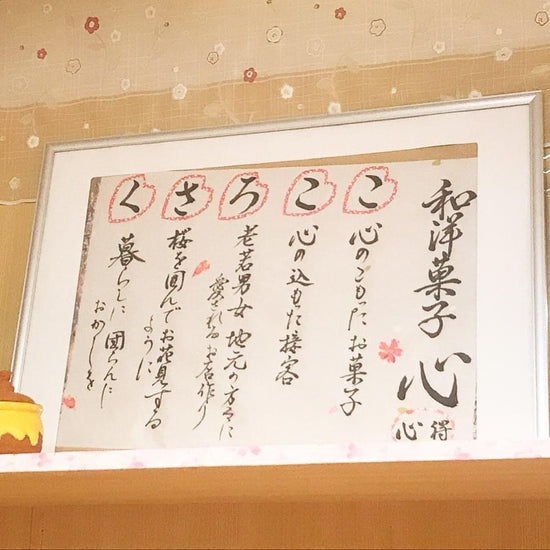 和洋菓子 心
心得
こ
心のこもったお菓子
こ
心の込もた接客
ろ
老若男女 地元の方々に
愛されるお店作り
さ
桜を囲んでお花見する
ように
く
暮らしに 団らんに
おかしを